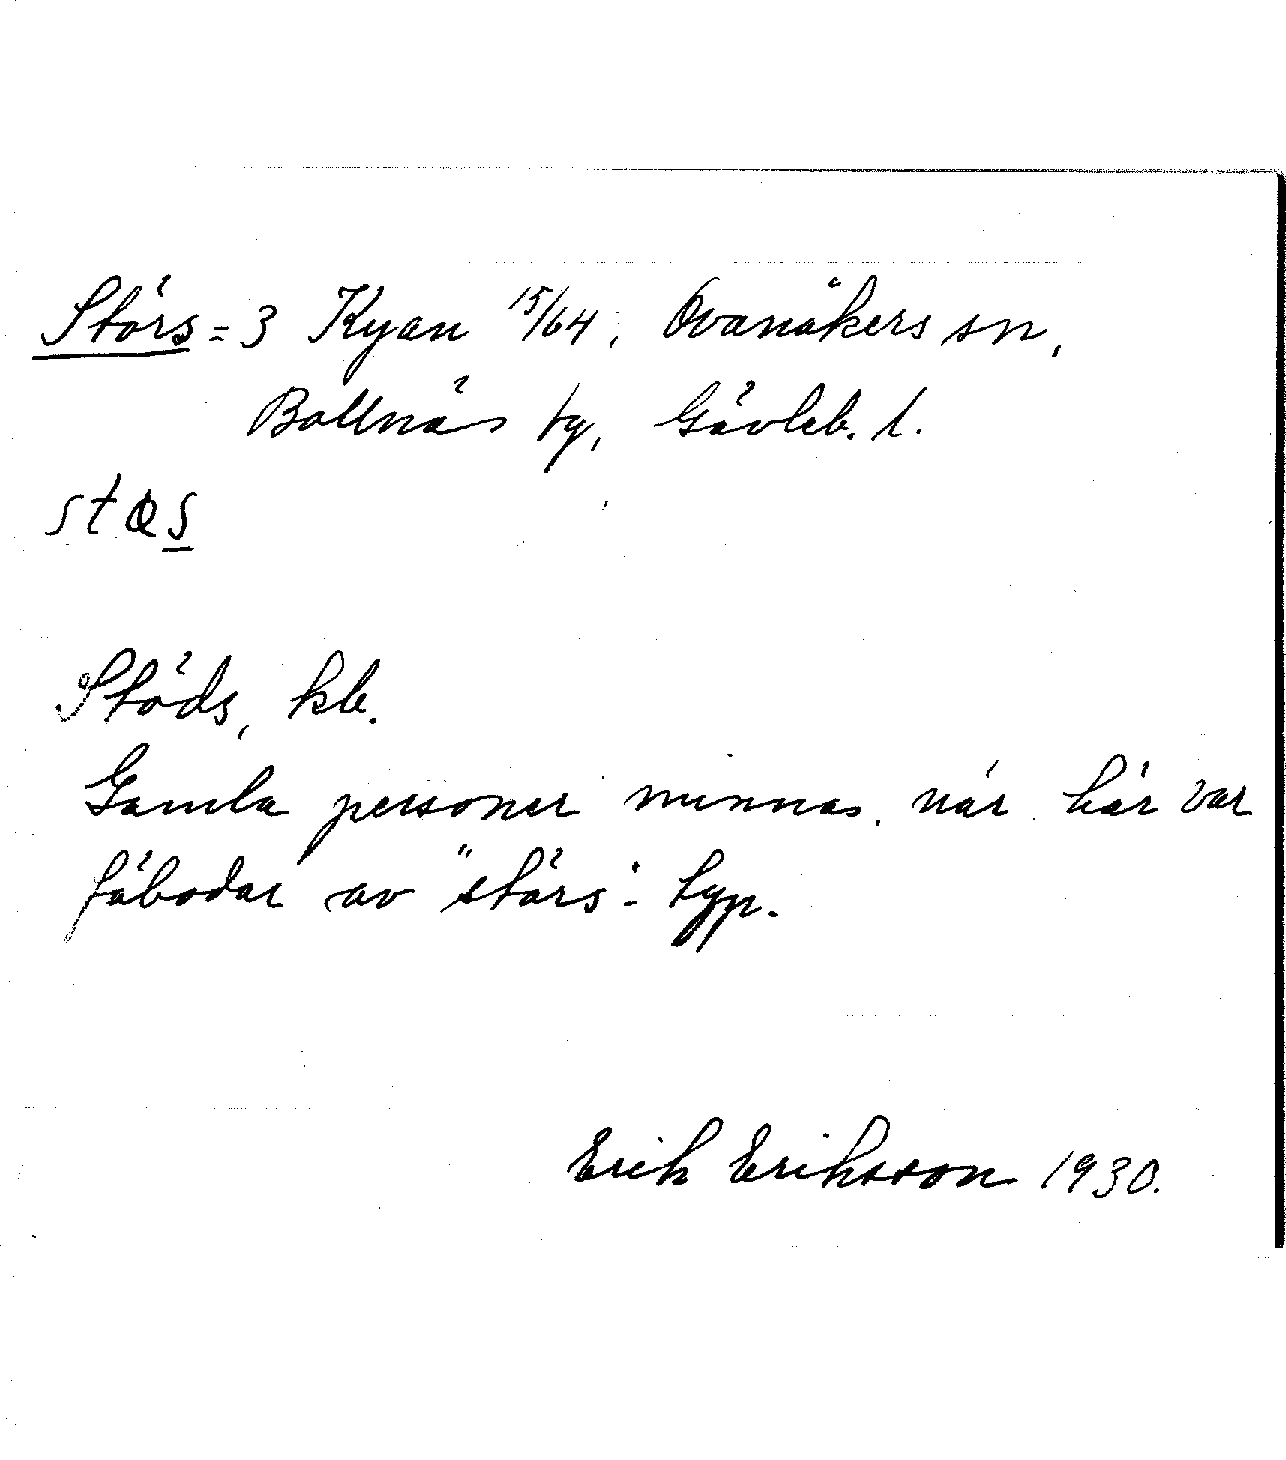 Störs = 3 Kyan 15/64, Ovanåkers sn,
Bollnäs tg, Gävleb. l.
stɶs
Stöds, kb.
Gamla personer minnas, när här var
fäbodar av "störs"- typ.
Erik Eriksson 1930.